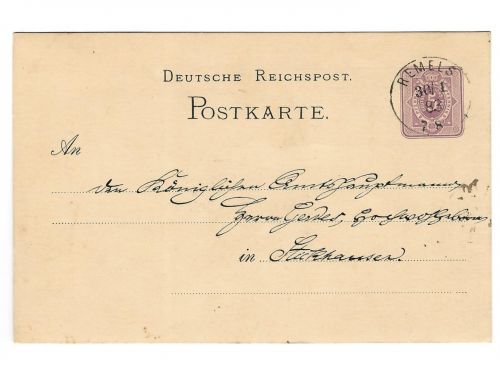 DEUTSCHE REICHSPOST.
POSTKARTE.
REMELS
30/1
83
7-8
An
den Königlichen Amtshauptmann
Herrn Gerdes, Hochwohlboren
in Stickhausen.